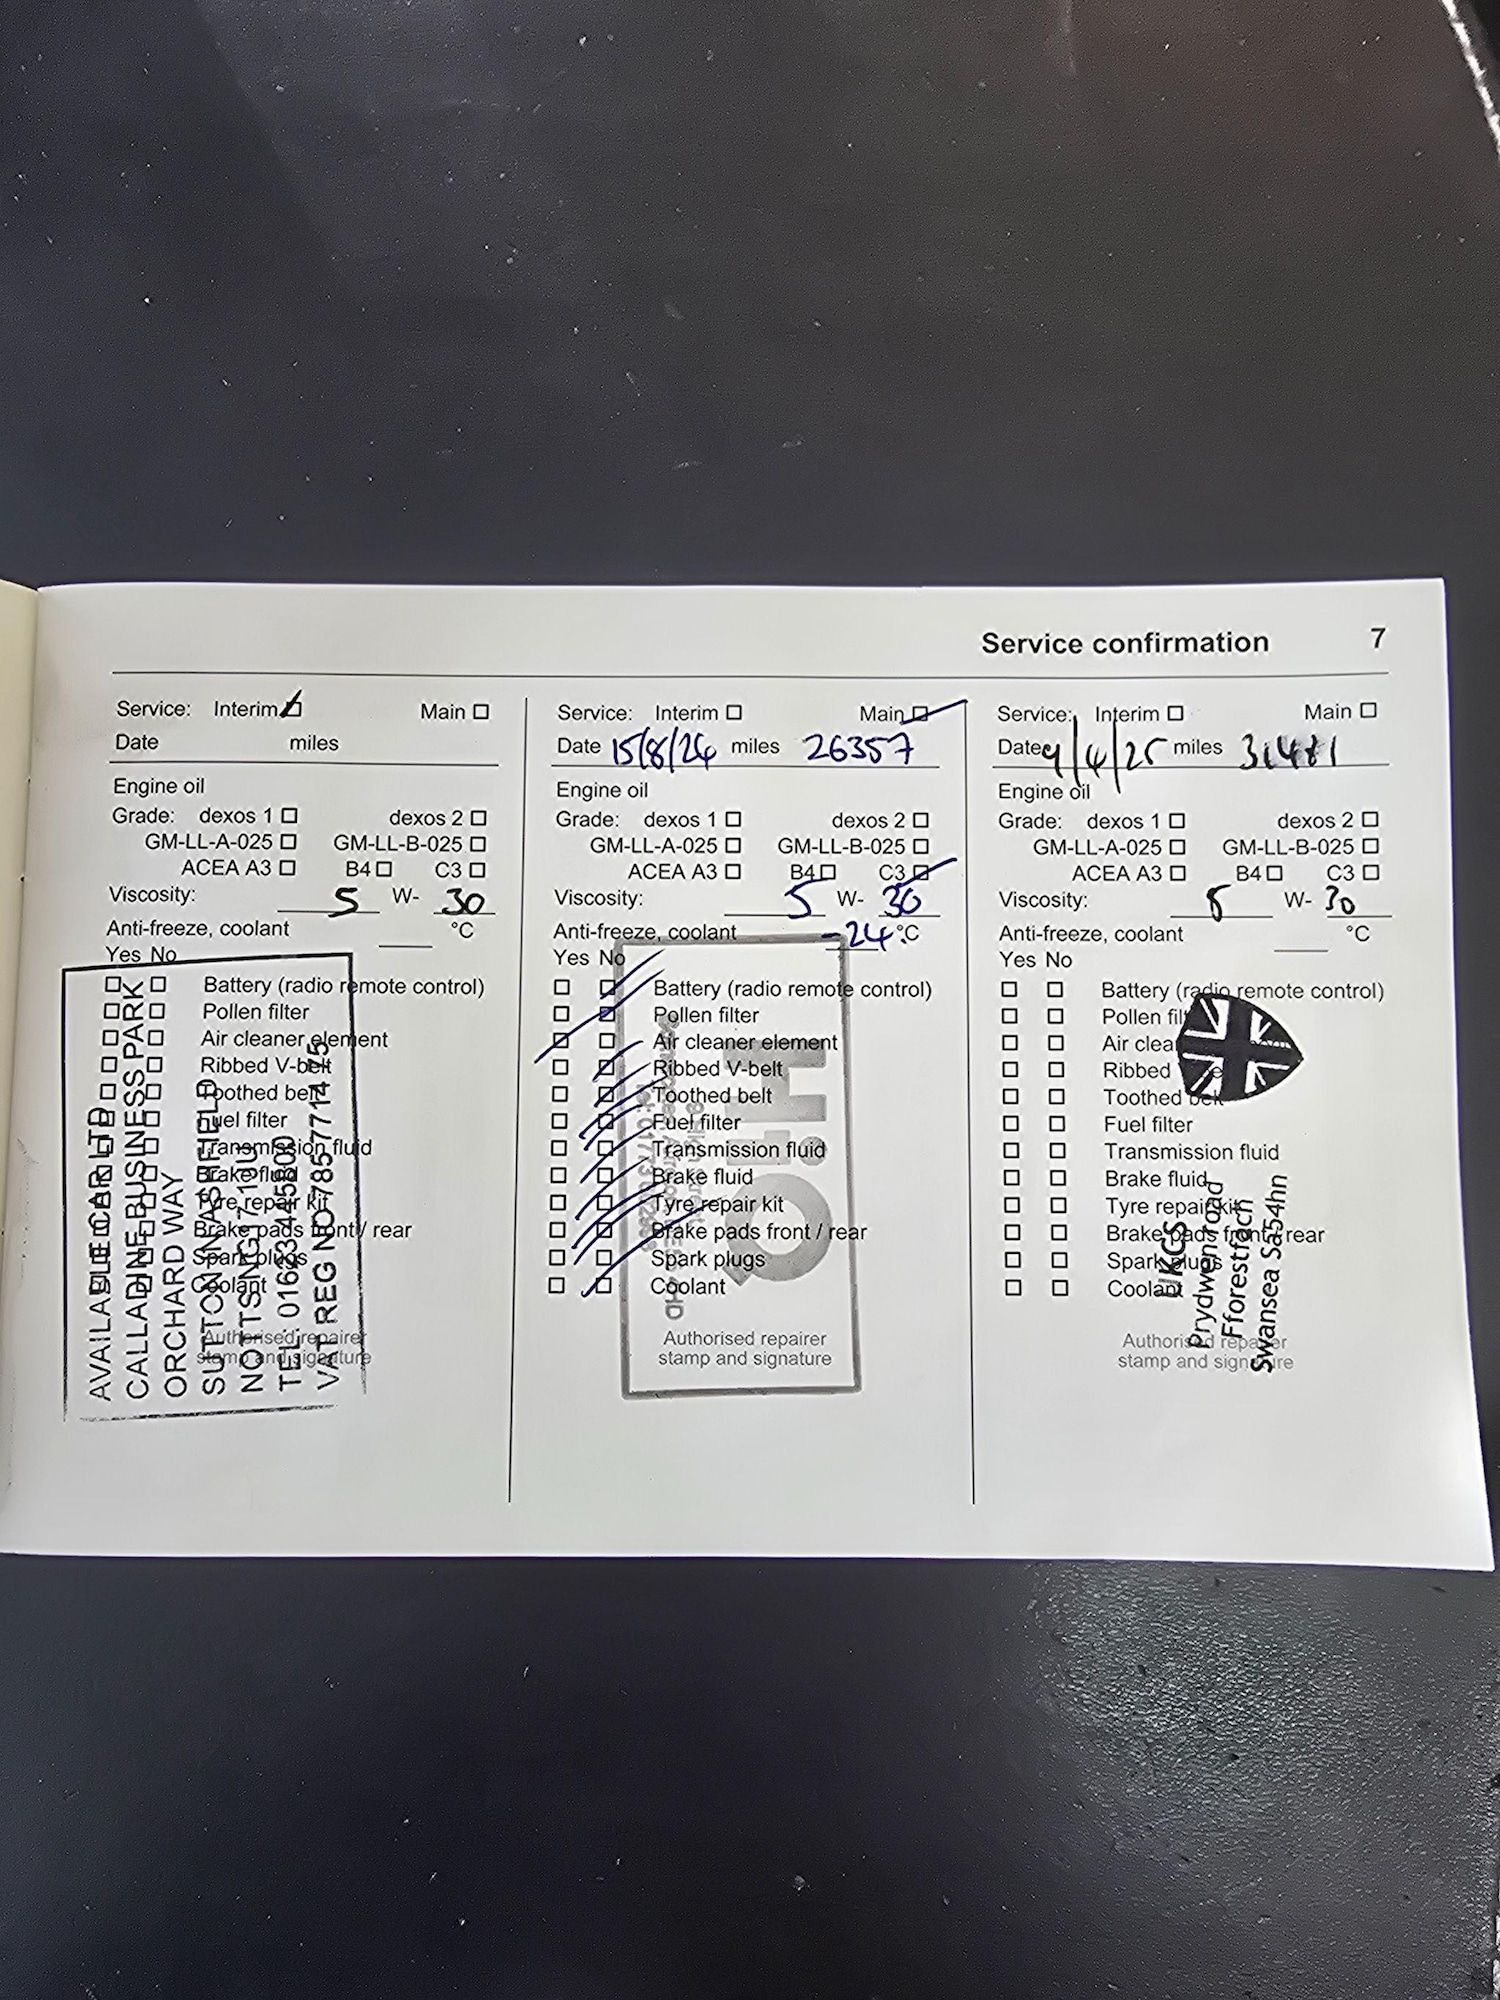 Service confirmation 7
Service: Interim Main
Date miles
Engine oil
Grade: dexos 1 dexos 2
GM-LL-A-025 GM-LL-B-025
ACEA A3 B4 C3
Viscosity: 5 W- 30
Anti-freeze, coolant °C
Yes No
Battery (radio remote control)
Pollen filter
Air cleaner element
Ribbed V-belt
Toothed belt
Fuel filter
Transmission fluid
Brake fluid
Tyre repair kit
Brake pads front / rear
Spark plugs
Coolant
Authorised repairer
stamp and signature
AVAILABLE CAR LTD
CALLADINE BUSINESS PARK
ORCHARD WAY
SUTTON IN ASHFIELD
NOTTS NG17 1JU
TEL: 01623 445800
VAT REG NO 785 7714 75
Service: Interim Main
Date 15/8/24 miles 26357
Engine oil
Grade: dexos 1 dexos 2
GM-LL-A-025 GM-LL-B-025
ACEA A3 B4 C3
Viscosity: 5 W- 30
Anti-freeze, coolant -24 °C
Yes No
Battery (radio remote control)
Pollen filter
Air cleaner element
Ribbed V-belt
Toothed belt
Fuel filter
Transmission fluid
Brake fluid
Tyre repair kit
Brake pads front / rear
Spark plugs
Coolant
Authorised repairer
stamp and signature
HiQ
Service: Interim Main
Date 9/4/25 miles 31481
Engine oil
Grade: dexos 1 dexos 2
GM-LL-A-025 GM-LL-B-025
ACEA A3 B4 C3
Viscosity: 5 W- 30
Anti-freeze, coolant °C
Yes No
Battery (radio remote control)
Pollen filter
Air cleaner
Ribbed
Toothed belt
Fuel filter
Transmission fluid
Brake fluid
Tyre repair kit
Brake pads front / rear
Spark plugs
Coolant
Authorised repairer
stamp and signature
UKCS
Prydwen road
Fforestfach
Swansea Sa54hn